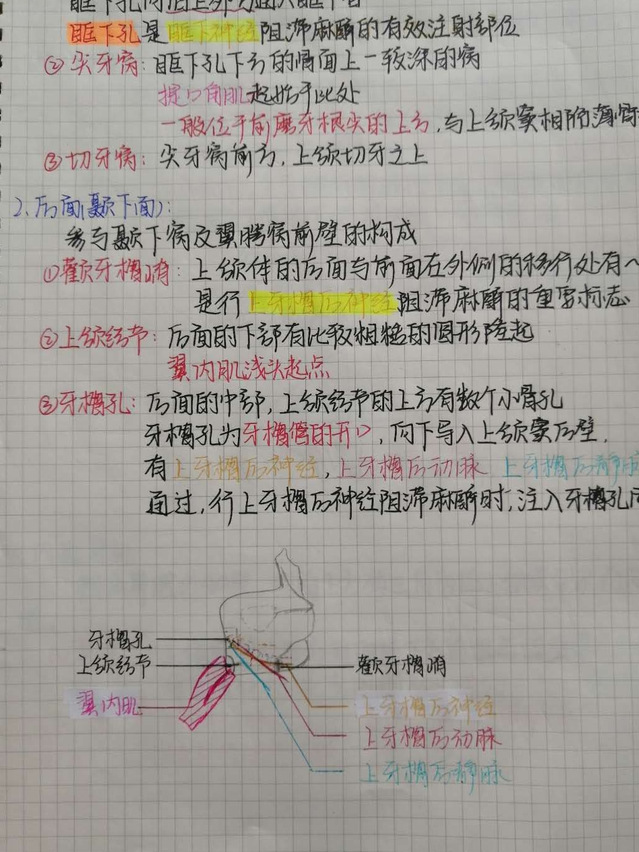 眶下孔是眶下神经阻滞麻醉的有效注射部位
②尖牙窝：眶下孔下方的骨面上一较深的窝
提口角肌起始于此处
一般位于前磨牙根尖的上方，与上颌窦相隔薄骨
③切牙窝：尖牙窝前方，上颌切牙之上
2、后面(颞下面)：
参与颞下窝及翼腭窝前壁的构成
①颧牙槽嵴：上颌体的后面与前面在外侧的移行处有
是行上牙槽后神经阻滞麻醉的重要标志
②上颌结节：后面的下部有比较粗糙的圆形隆起
翼内肌浅头起点
③牙槽孔：后面的中部，上颌结节的上方有数个小骨孔
牙槽孔为牙槽管的开口，向下导入上颌窦后壁，
有上牙槽后神经，上牙槽后动脉 上牙槽后静脉
通过，行上牙槽后神经阻滞麻醉时，注入牙槽孔
牙槽孔
上颌结节 颧牙槽嵴
翼内肌 上牙槽后神经
上牙槽后动脉
上牙槽后静脉